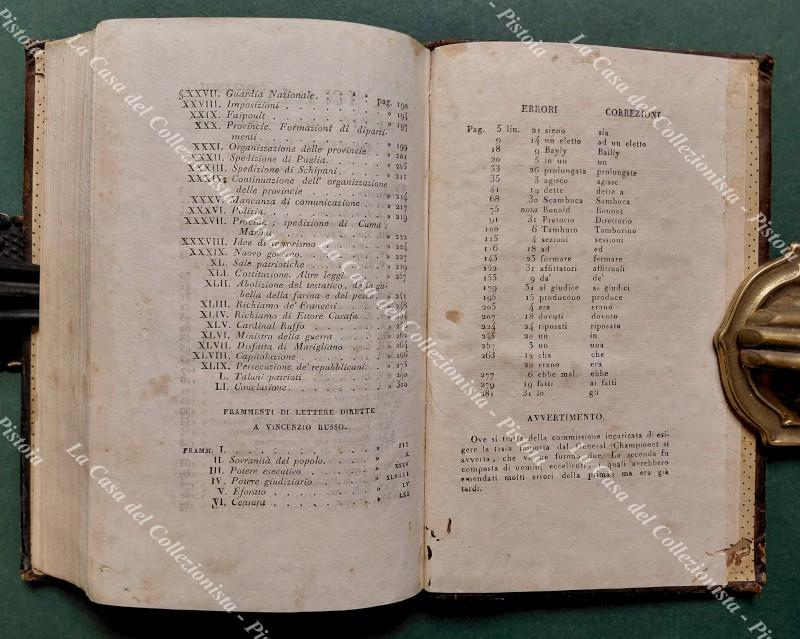 §.XXVII. Guardia Nazionale. . . . . . pag. 190
XXVIII. Imposizioni . . . . . . . . . » 194
XXIX. Faipoult . . . . . . . . . . » 197
XXX. Provincie. Formazioni di diparti-
menti . . . . . . . . . . . » 199
XXXI. Organizzazione delle provincie . . » 201
XXXII. Spedizione di Puglia. . . . . . » 205
XXXIII. Spedizione di Schipani. . . . . » 211
XXXIV. Continuazione dell' organizzazione
delle provincie . . . . . . . » 214
XXXV. Mancanza di comunicazione . . . » 217
XXXVI. Polizia. . . . . . . . . . » 219
XXXVII. Procida; spedizione di Cuma;
. . . . . . . . . . » 224
XXXVIII. Idee di terrorismo . . . . . . » 227
XXXIX. Nuovo governo. . . . . . . » 229
XL. Sale patriotiche . . . . . . . »
XLI. Costituzione. Altre leggi . . . . » 237
XLII. Abolizione del testatico, della ga-
bella della farina e del pesce. . . » 241
XLIII. Richiamo de' Francesi. . . . . » 248
XLIV. Richiamo di Ettore Carafa . . . »
XLV. Cardinal Ruffo . . . . . . . »
XLVI. Ministro della guerra . . . . . »
XLVII. Disfatta di Marigliano . . . . »
XLVIII. Capitolazione . . . . . . . » 266
XLIX. Persecuzione de' repubblicani. . . » 275
L. Taluni patrioti . . . . . . . » 290
LI. Conclusione. . . . . . . . . » 300
FRAMMENTI DI LETTERE DIRETTE
A VINCENZIO RUSSO.
FRAMM. I. . . . . . . . . . . . » III
II. Sovranità del popolo. . . . . . » X
III. Potere esecutivo . . . . . . . » XXXV
IV. Potere giudiziario . . . . . . » XLVIII
V. Eforato . . . . . . . . . . » LV
VI. Censura . . . . . . . . . . »
ERRORI CORREZIONI
Pag. 5 lin. 21 sieno sia
9 14 un eletto ad un eletto
18 9 Bayly Bailly
20 5 in un un
33 26 prolungata prolungate
35 3 agisco agisse
41 19 dette dette a
68 30 Scambuca Sambuca
75 nota Bonald Bonnet
91 31 Pretorio Direttorio
100 6 Tamburo Tamborino
115 4 sezioni sessioni
116 18 ad ed
143 23 formare fermare
152 31 affittatori affittuali
155 9 da' dà
179 31 al giudice ai giudici
195 15 producono produce
205 4 era erano
207 18 dovuti dovuto
224 24 riposati riposato
13 un in
3 un una
263 12 cha che
20 erano era
277 6 ebbe mal ebbe
279 19 fatti ai fatti
281 31 lo gli
AVVERTIMENTO.
Ove si tratta della commissione incaricata di esi-
gere la tassa imposta dal General Championet si
avverta, che ve ne furono due. La seconda fu
composta di uomini eccellenti, i quali avrebbero
emendati molti errori della prima; ma era già
tardi.
La Casa del Collezionista - Pistoia